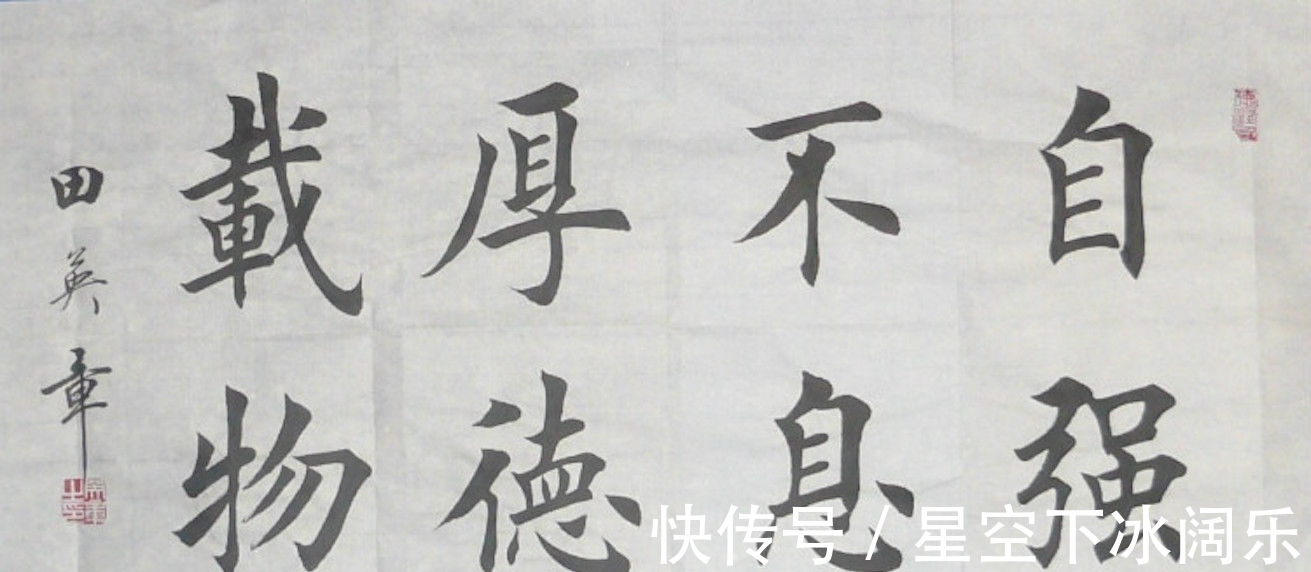 自强
不息
厚德
載物
田英章
快传号/星空下冰阔乐